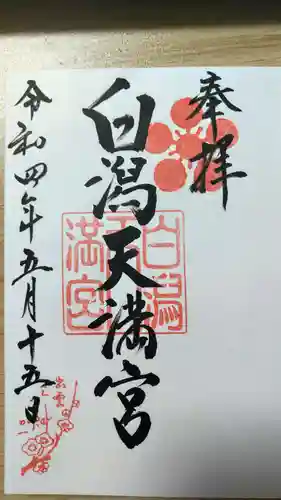 奉拝
白潟天満宮
白潟天満宮
令和四年五月十五日
出雲